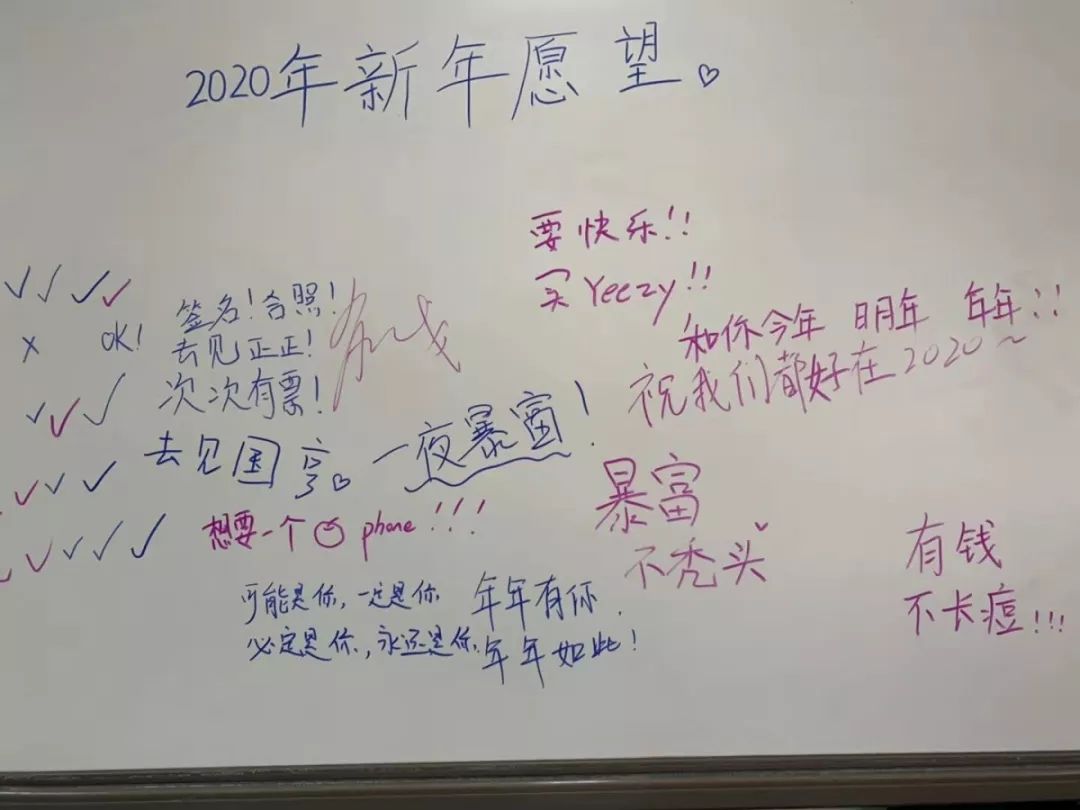 2020年新年愿望。
要快乐!!
买Yeezy!!
签名!合照!
OK!
去见正正!
次次有票!
有钱
和你今年 明年 年年!!
祝我们都好在2020~
去见国 一夜暴富!
想要一个 phone!!!
暴富
不秃头
有钱
不长痘!!!
可能是你,一定是你
必定是你,永还是你
年年有你.
年年如此!